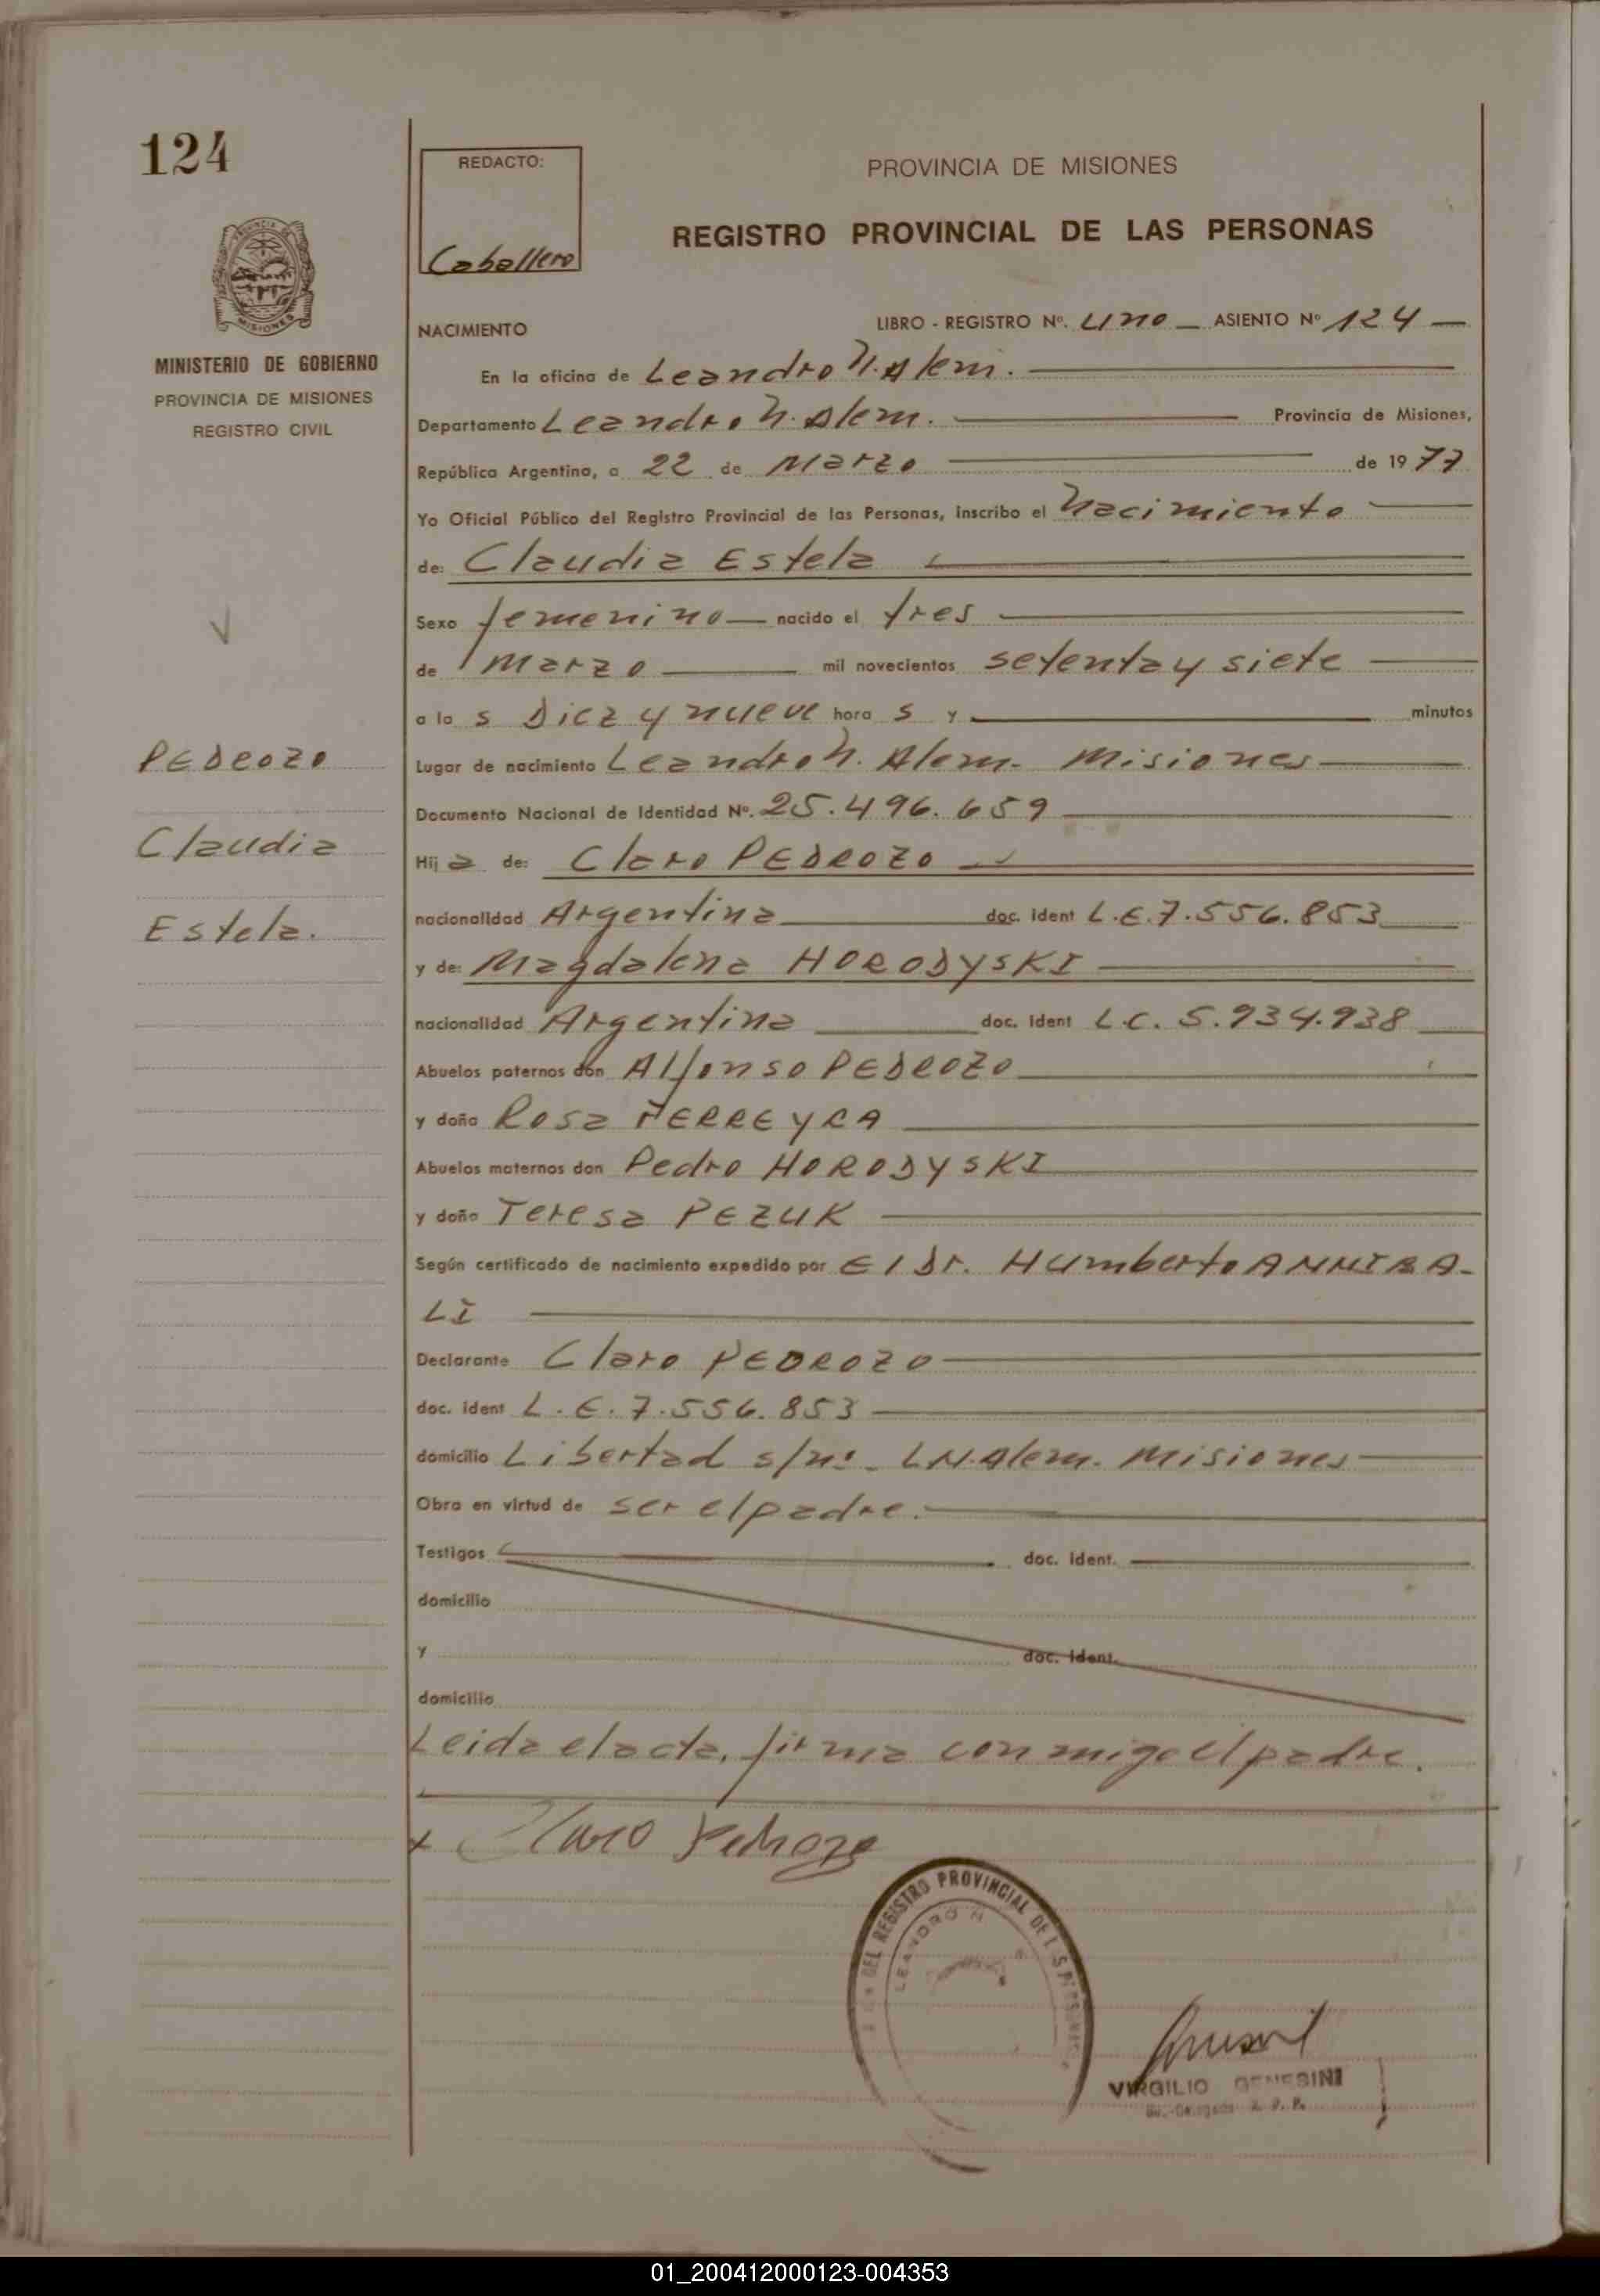 124
REDACTO:
Caballero
PROVINCIA DE MISIONES
REGISTRO PROVINCIAL DE LAS PERSONAS
MISIONES
MINISTERIO DE GOBIERNO
PROVINCIA DE MISIONES
REGISTRO CIVIL
NACIMIENTO
LIBRO - REGISTRO Nº. uno ASIENTO Nº 124
En la oficina de Leandro N. Alem.
Departamento Leandro N. Alem. Provincia de Misiones,
República Argentina, a 22 de Marzo de 1977
Yo Oficial Público del Registro Provincial de las Personas, inscribo el Nacimiento
de: Claudia Estela
Sexo femenino nacido el tres
de marzo mil novecientos setenta y siete
a la s Diez y nueve hora s y minutos
Lugar de nacimiento Leandro N. Alem. Misiones
Documento Nacional de Identidad Nº. 25.496.659
Hij a de: Claro PEDROZO
nacionalidad Argentina doc. ident L.E. 7.556.853
y de: Magdalena HORODYSKI
nacionalidad Argentina doc. ident L.C. 5.934.938
Abuelos paternos don Alfonso PEDROZO
y doña Rosa FERREYRA
Abuelos maternos don Pedro HORODYSKI
y doña Teresa PEZUK
Según certificado de nacimiento expedido por El Dr. Humberto ANNIBA-
LI
Declarante Claro PEDROZO
doc. ident L.E. 7.556.853
domicilio Libertad s/nº - L.N. Alem. Misiones
Obra en virtud de ser el padre.
Testigos doc. ident.
domicilio
y doc. ident.
domicilio
Leida el acta, firma conmigo el padre.
x Claro Pedrozo
PEDROZO
Claudia
Estela.
DEL REGISTRO PROVINCIAL DE
LEANDRO N
VIRGILIO GENESINI
01_200412000123-004353